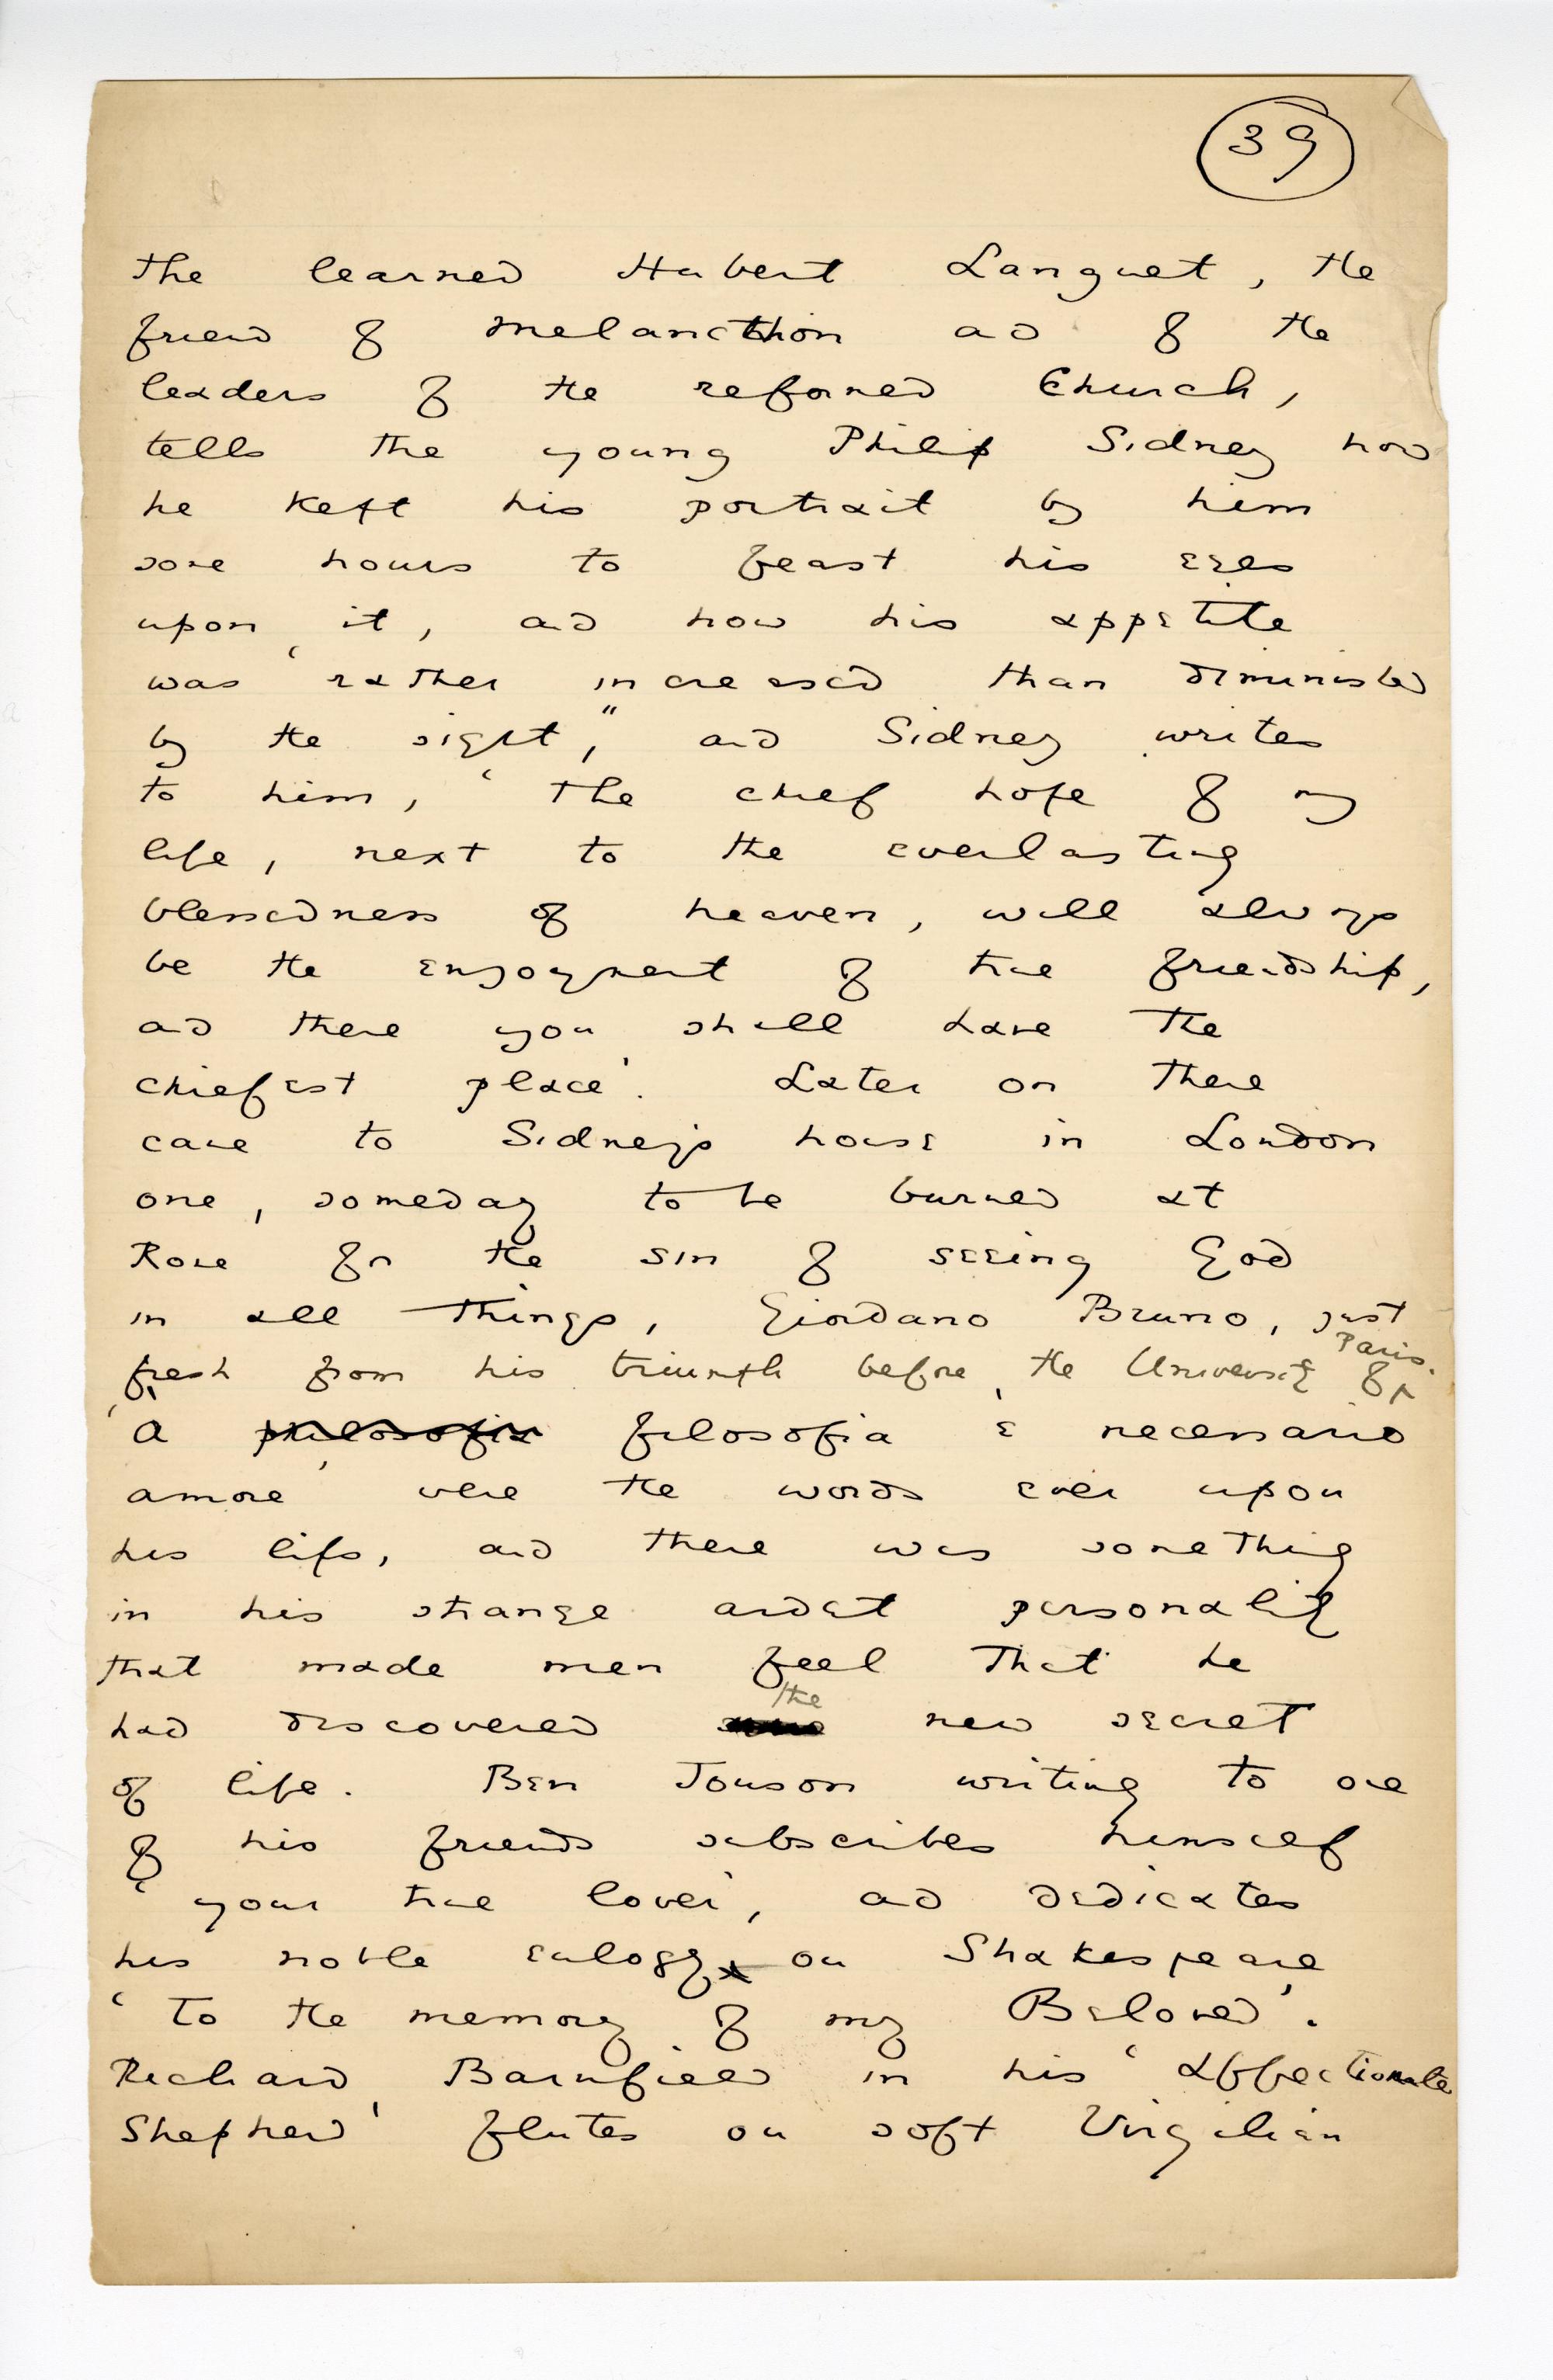 39
The learned Hubert Languet, the
friend of Melancthon and of the
leaders of the reformed Church,
tells the young Philip Sidney how
he kept his portrait by him
some hours to feast his eyes
upon it, and how his appetite
was 'rather increased than diminished
by the sight," and Sidney writes
to him, 'the chief hope of my
life, next to the everlasting
blessedness of heaven, will always
be the enjoyment of true friendship,
and there you shall have the
chiefest place'. Later on there
came to Sidney's house in London
one, someday to be burned at
Rome for the sin of seeing God
in all things, Giordano Bruno, just
fresh from his triumph before the University of Paris.
'A philosofia filosofia è necessario
amore' were the words ever upon
his lips, and there was something
in his strange ardent personality
that made men feel that he
had discovered the new secret
of life. Ben Jonson writing to one
of his friends subscribes himself
'your true lover', and dedicates
his noble eulogy on Shakespeare
'to the memory of my Beloved'.
Richard Barnfield in his 'Affectionate
Shepherd' flutes on soft Virgilian